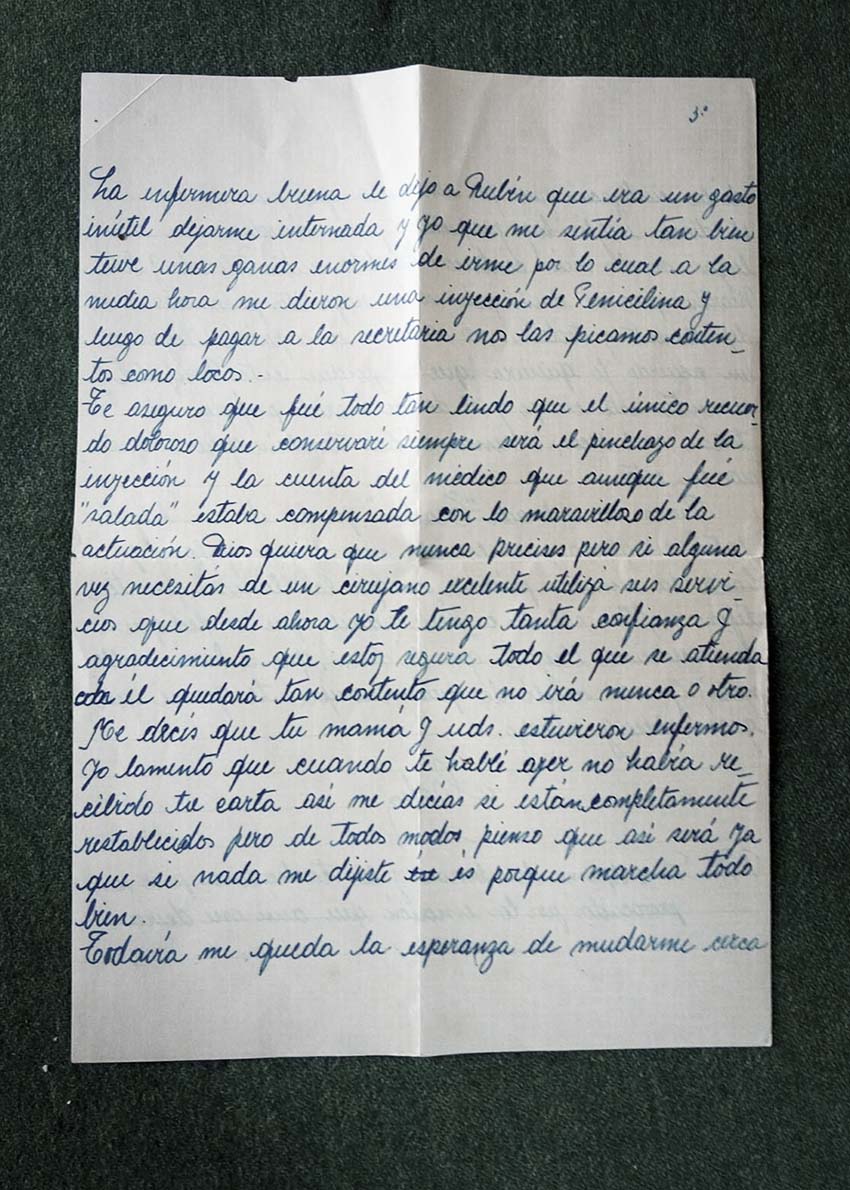 3º
La enfermera buena le dijo a Rubén que era un gasto
inútil dejarme internada y yo que me sentía tan bien
tuve unas ganas enormes de irme por lo cual a la
media hora me dieron una inyección de Penicilina y
luego de pagar a la secretaria nos las picamos conten-
tos como locos.-
Te aseguro que fué todo tan lindo que el único recuer-
do doloroso que conservaré siempre será el pinchazo de la
inyección y la cuenta del médico que aunque fué
"salada" estaba compensada con lo maravilloso de la
actuación. Dios quiera que nunca precises pero si alguna
vez necesitás de un cirujano excelente utilizá sus servi-
cios que desde ahora yo le tengo tanta confianza y
agradecimiento que estoy segura todo el que se atienda
con él quedará tan contento que no irá nunca o otro.
Me decís que tu mamá y uds. estuvieron enfermos.
Yo lamento que cuando te hablé ayer no había re-
cibido tu carta así me decías si están completamente
restablecidos pero de todos modos pienso que así será ya
que si nada me dijiste és porque marcha todo
bien.
Todavía me queda la esperanza de mudarme cerca